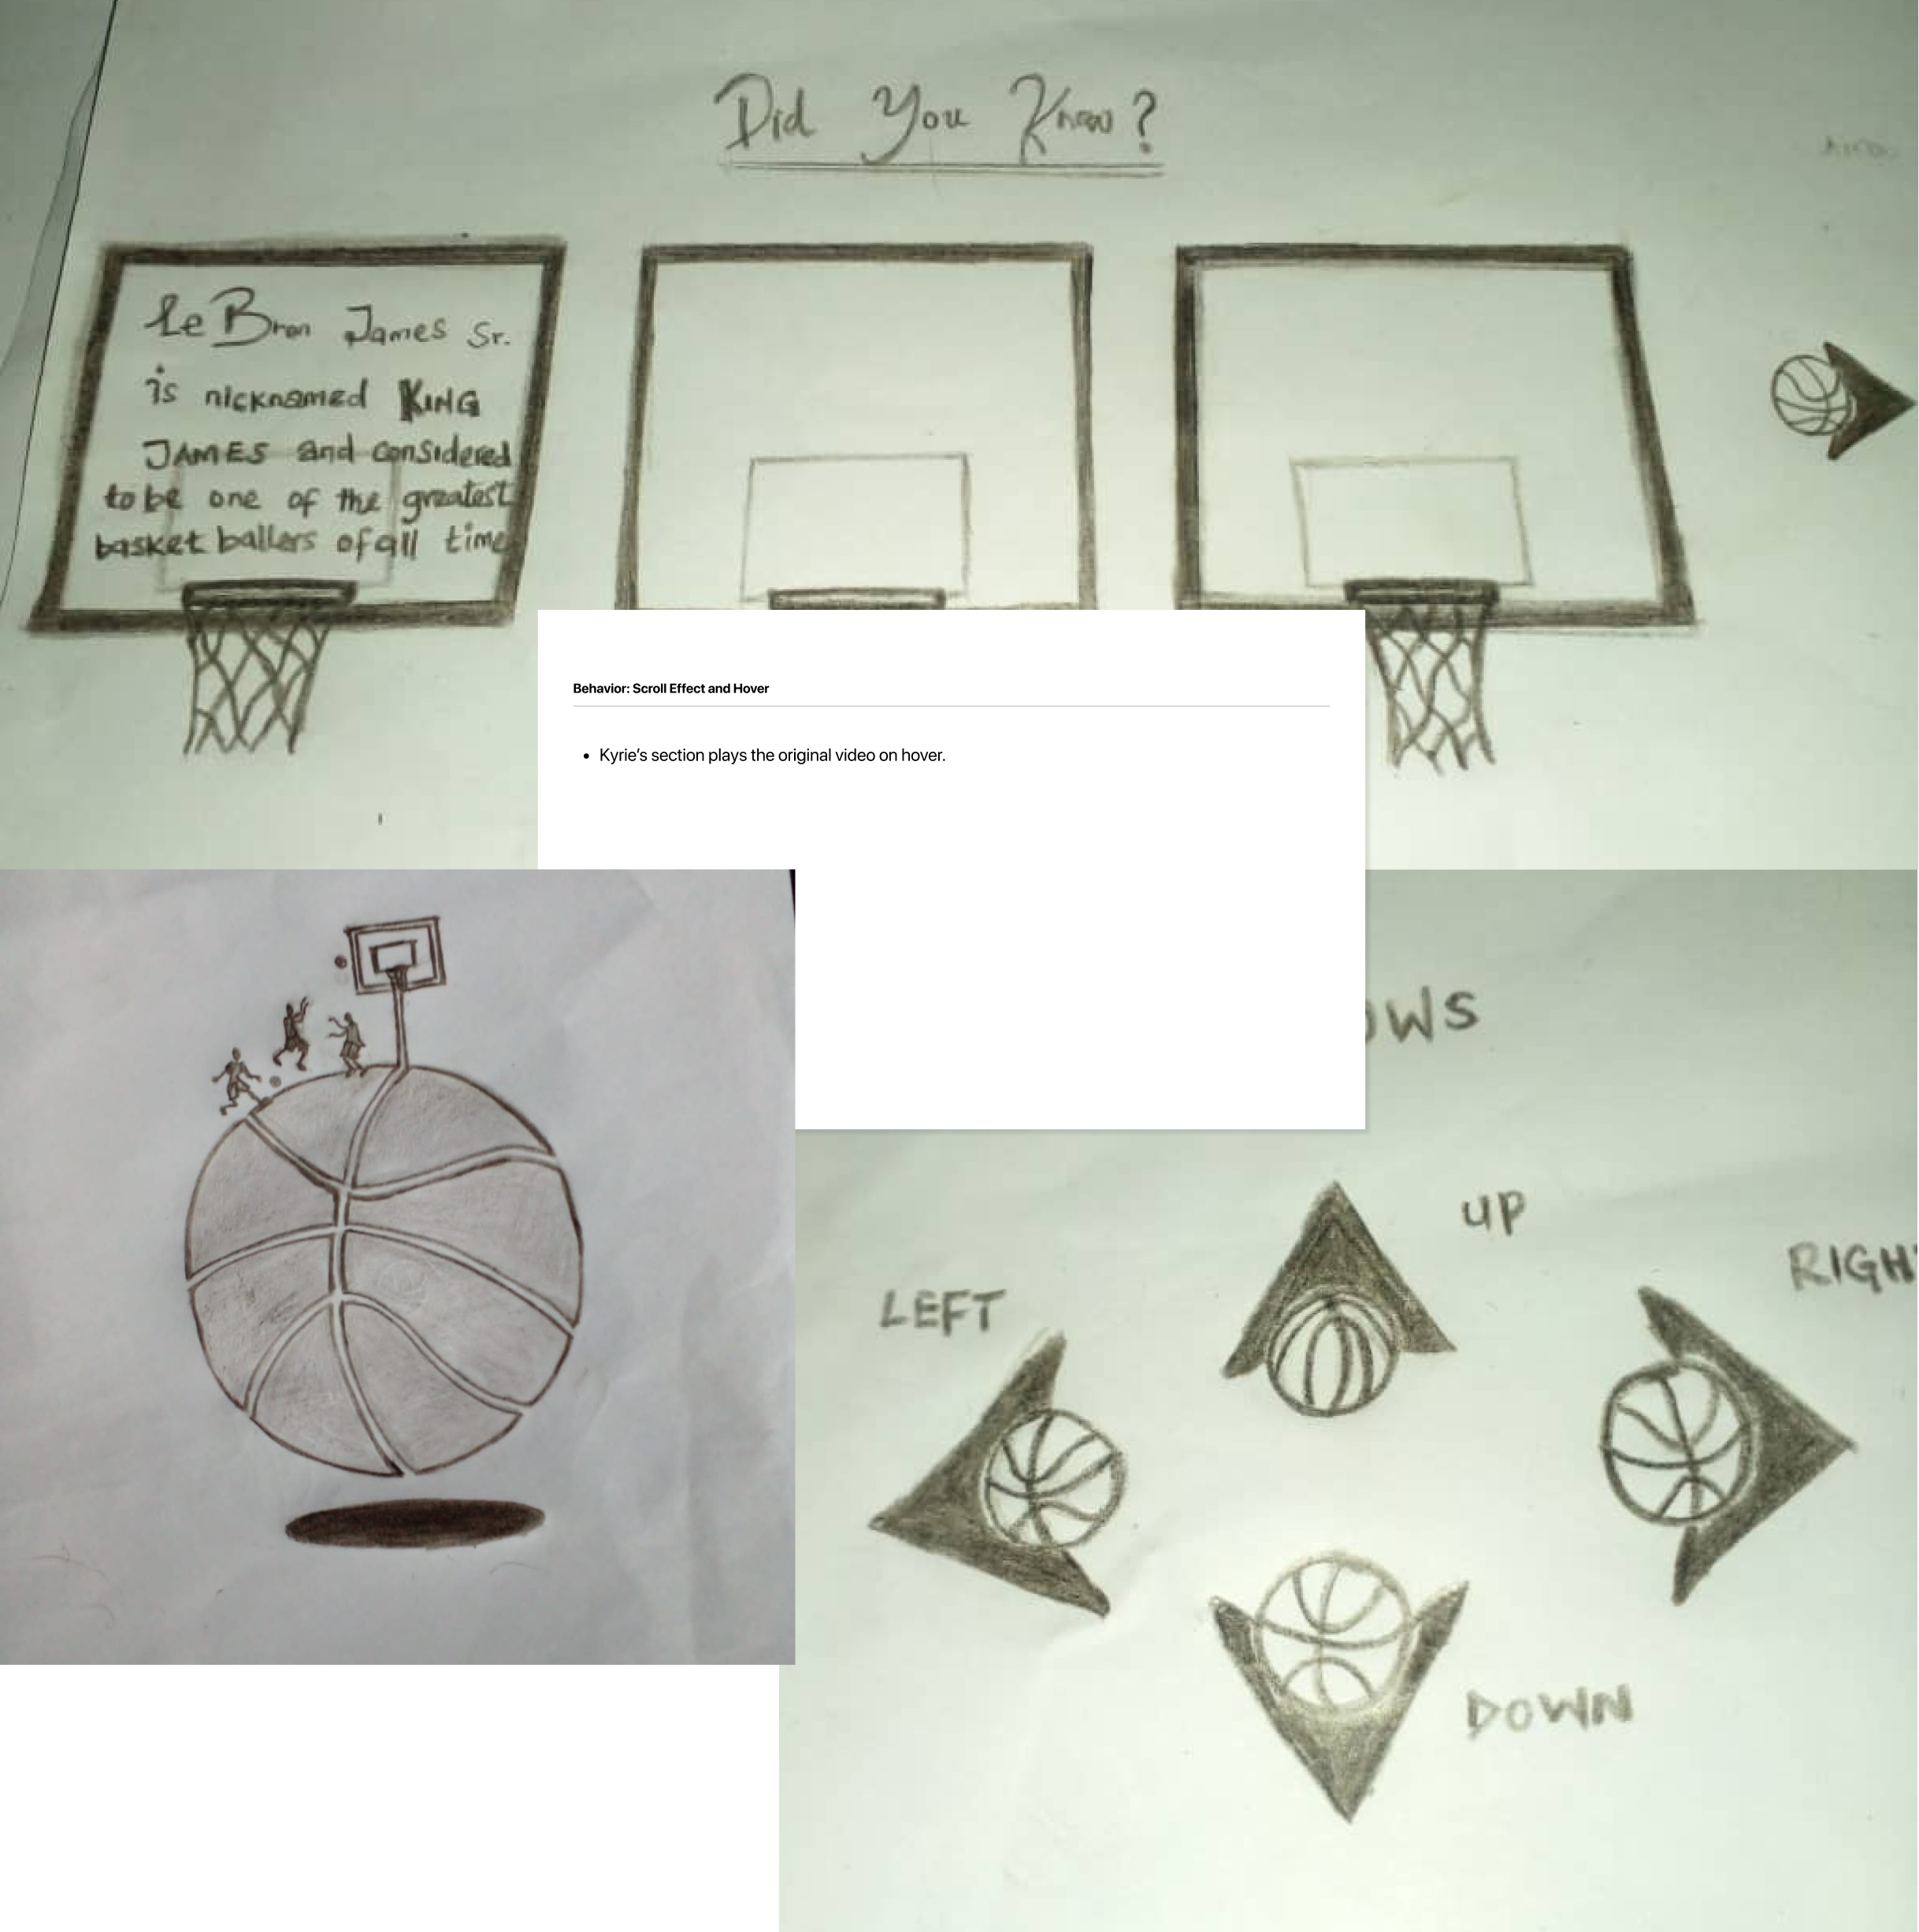 Did You Know?
LeBron James Sr.
is nicknamed KING
JAMES and considered
to be one of the greatest
basket ballers of all time
Behavior: Scroll Effect and Hover
• Kyrie's section plays the original video on hover.
OWS
UP
RIGH
LEFT
DOWN